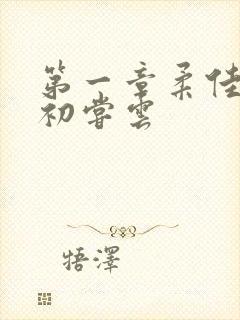 第一章柔佳
初尝云
牾澤